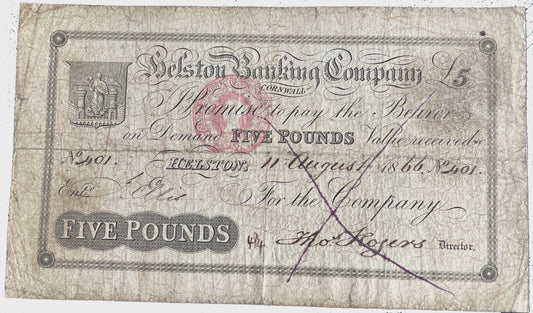 Helston Banking Company £5
CORNWALL
Promise to pay the Bearer
on Demand FIVE POUNDS Value received
No 401. HELSTON. 11 August 1866 No 401.
Entd
For the Company
FIVE POUNDS Thos Rogers Director.